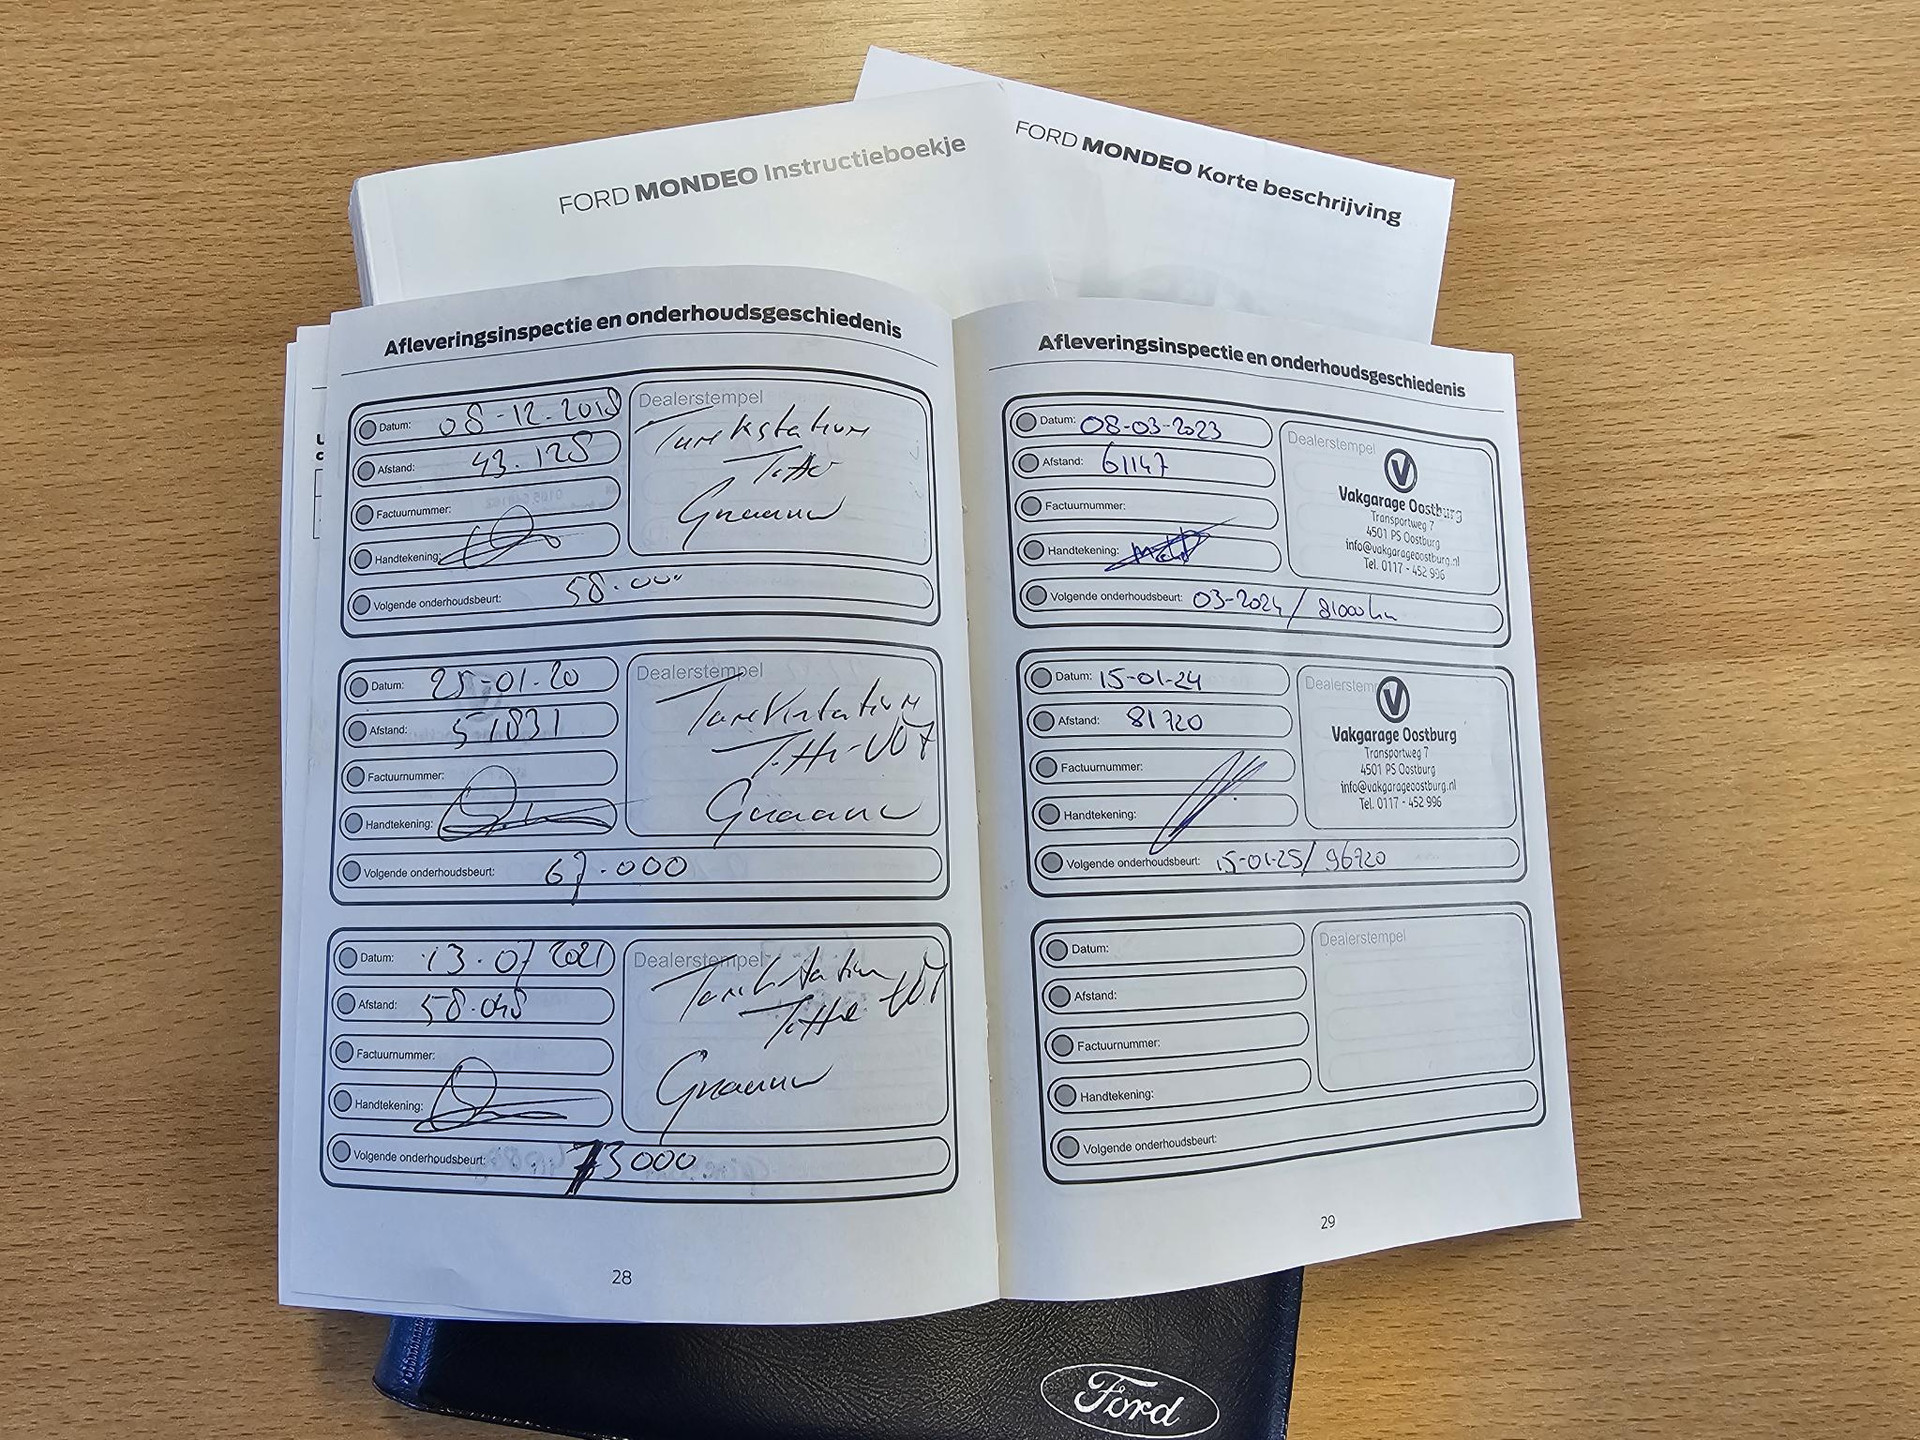 FORD MONDEO Instructieboekje
FORD MONDEO Korte beschrijving
Afleveringsinspectie en onderhoudsgeschiedenis
Datum: 08-12-2018
Afstand: 43.128
Factuurnummer:
Handtekening:
Volgende onderhoudsbeurt: 58.000
Dealerstempel
Datum: 25-01-20
Afstand: 51831
Factuurnummer:
Handtekening:
Volgende onderhoudsbeurt: 67.000
Dealerstempel
Datum: 13.07 2021
Afstand: 58.048
Factuurnummer:
Handtekening:
Volgende onderhoudsbeurt: 73000
Dealerstempel
28
Afleveringsinspectie en onderhoudsgeschiedenis
Datum: 08-03-2023
Afstand: 61147
Factuurnummer:
Handtekening:
Volgende onderhoudsbeurt: 03-2024 / 81000km
Dealerstempel
V
Vakgarage Oostburg
Transportweg 7
4501 PS Oostburg
info@vakgarageoostburg.nl
Tel. 0117 - 452 996
Datum: 15-01-24
Afstand: 81720
Factuurnummer:
Handtekening:
Volgende onderhoudsbeurt: 15-01-25 / 96720
Dealerstempel
V
Vakgarage Oostburg
Transportweg 7
4501 PS Oostburg
info@vakgarageoostburg.nl
Tel. 0117 - 452 996
Datum:
Afstand:
Factuurnummer:
Handtekening:
Volgende onderhoudsbeurt:
Dealerstempel
29
Ford